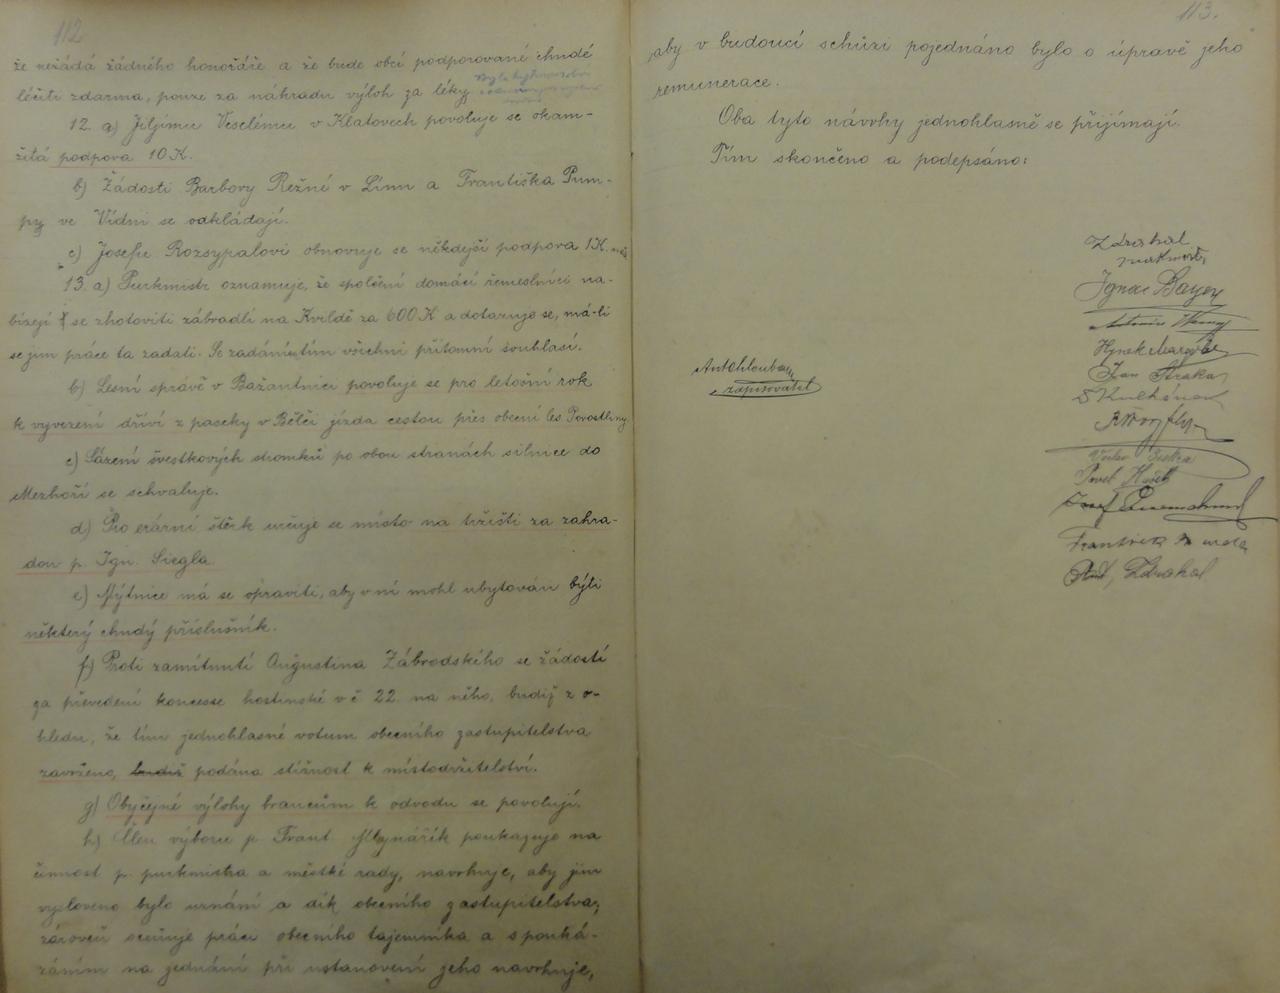 112
že nežádá žádného honoráře a že bude obcí podporované chudé
léčiti zdarma, pouze za náhradu výloh za léky
12. a) Jiljímu Veselému v Klatovech povoluje se okam-
žitá podpora 10 K.
b) Žádosti Barbory Režné v Linu a Františka Pum-
py ve Vídni se odkládají.
c) Josefu Rozsypalovi obnovuje se někdejší podpora 1K.
13. a) Purkmistr oznamuje, že společní domácí řemeslníci na-
bízejí se zhotoviti zábradlí na Kvildě za 600 K a dotazuje se, má-li
se jim práce ta zadati. Se zadáním tím všichni přítomní souhlasí.
b) Lesní správě v Bažantnici povoluje se pro letošní rok
k vyvezení dříví z paseky v Bělči jízda cestou přes obecní les Porostliny
c) Sázení švestkových stromků po obou stranách silnice do
Mezhoří se schvaluje.
d) Pro erární štěrk určuje se místo na tržišti za zahra-
dou p. Ign. Siegla.
e) Mýtnice má se opraviti, aby v ní mohl ubytován býti
některý chudý příslušník.
f) Proti zamítnutí Augustina Zábrodského se žádostí
za převedení koncesse hostinské v č 22. na něho, budiž z o-
hledu, že tím jednohlasné votum obecního zastupitelstva
zavrženo, budiž podána stížnost k místodržitelství.
g) Obyčejné výlohy brancům k odvodu se povolují.
h) Člen výboru p. Frant. Mlynářík poukazuje na
činnost p. purkmistra a městské rady, navrhuje, aby jim
vysloveno bylo uznání a dík obecního zastupitelstva;
zároveň oceňuje práci obecního tajemníka a s pouká-
záním na jednání při ustanovení jeho navrhuje,
113.
aby v budoucí schůzi pojednáno bylo o úpravě jeho
remunerace.
Oba tyto návrhy jednohlasně se přijímají.
Tím skončeno a podepsáno:
Zdrahal
purkmistr,
Ignac Bayer
Antonín
Hynek
Jan Straka
zapisovatel
Pavel
Josef
František
Ant. Zdrahal